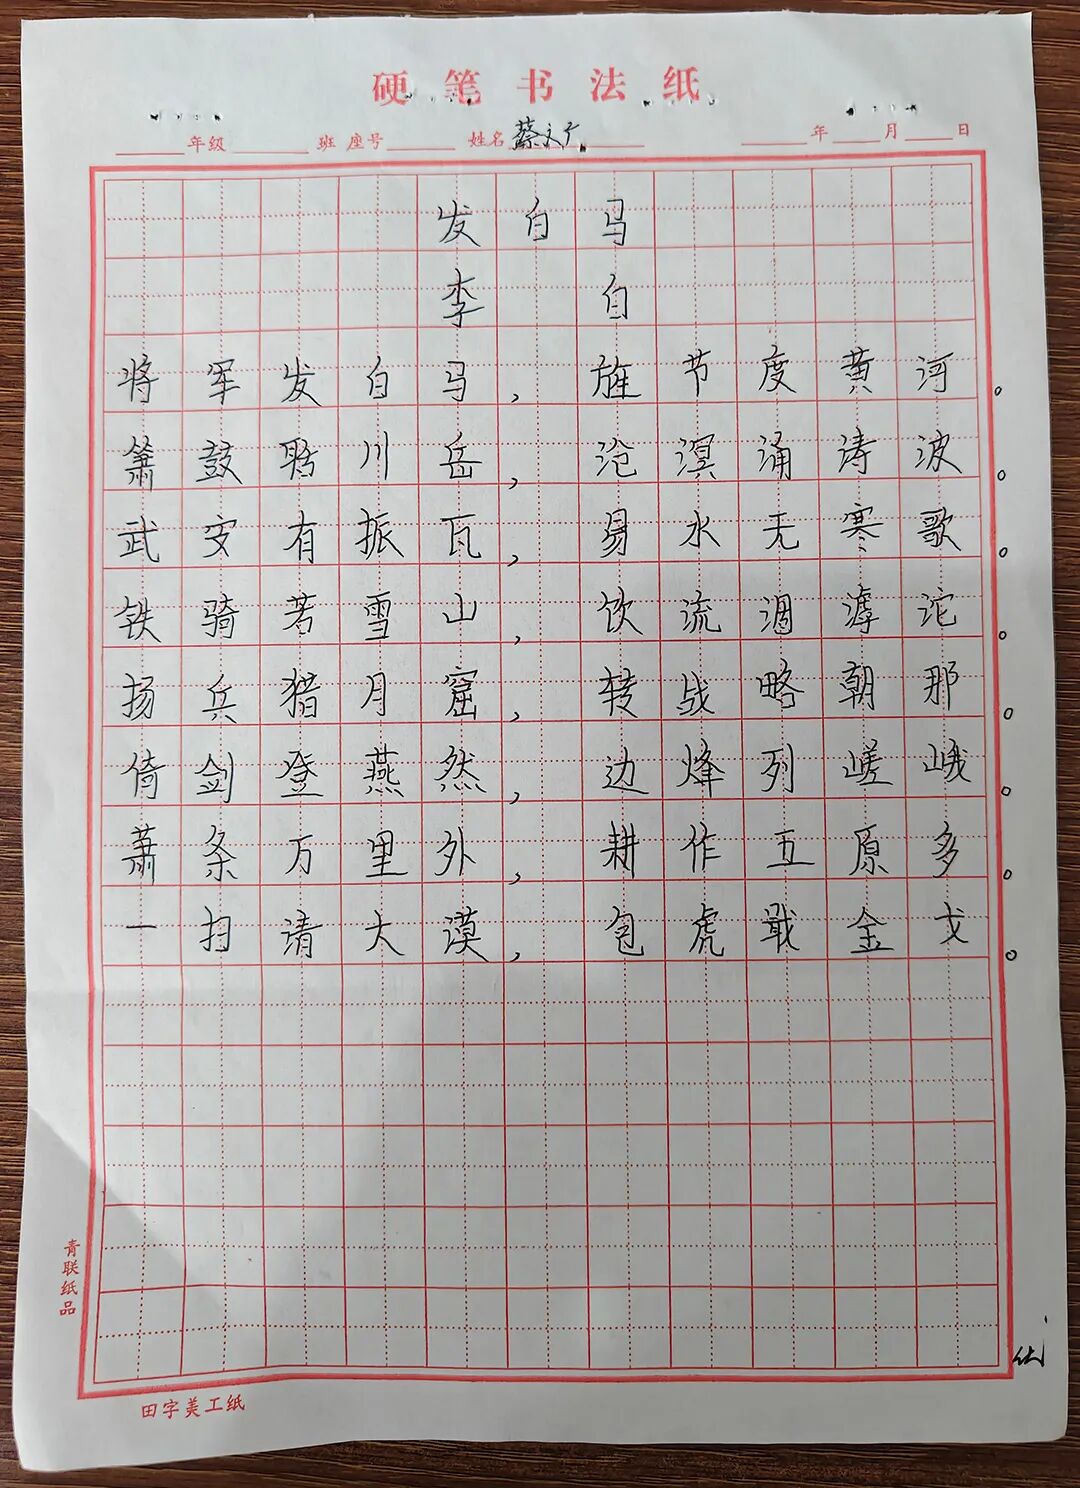 硬笔书法纸
年级 班 座号 姓名 蔡文广 年 月 日
发白马
李白
将军发白马，旌节度黄河。
箫鼓聒川岳，沧溟涌涛波。
武安有振瓦，易水无寒歌。
铁骑若雪山，饮流涸滹沱。
扬兵猎月窟，转战略朝那。
倚剑登燕然，边烽列嵯峨。
萧条万里外，耕作五原多。
一扫清大漠，包虎戢金戈。
青联纸品
田字美工纸